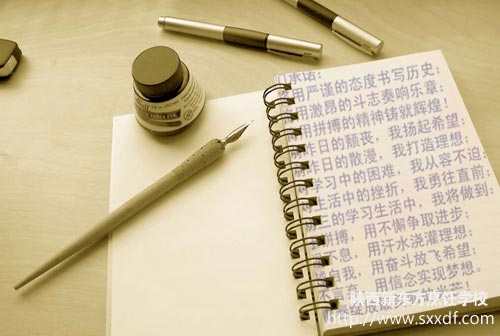 INDIA INK
承诺:
用严谨的态度书写历史;
用激昂的斗志奏响乐章;
用拼搏的精神铸就辉煌!
昨日的颓丧,我扬起希望;
昨日的散漫,我打造理想;
学习中的困难,我从容不迫;
生活中的挫折,我勇往直前;
三的学习生活中,我将做到:
拼搏,用不懈争取进步;
不息,用汗水浇灌理想;
自我,用奋斗放飞希望;
用信念实现梦想。
陕西新东方烹饪学校
http://www.sxxdf.com